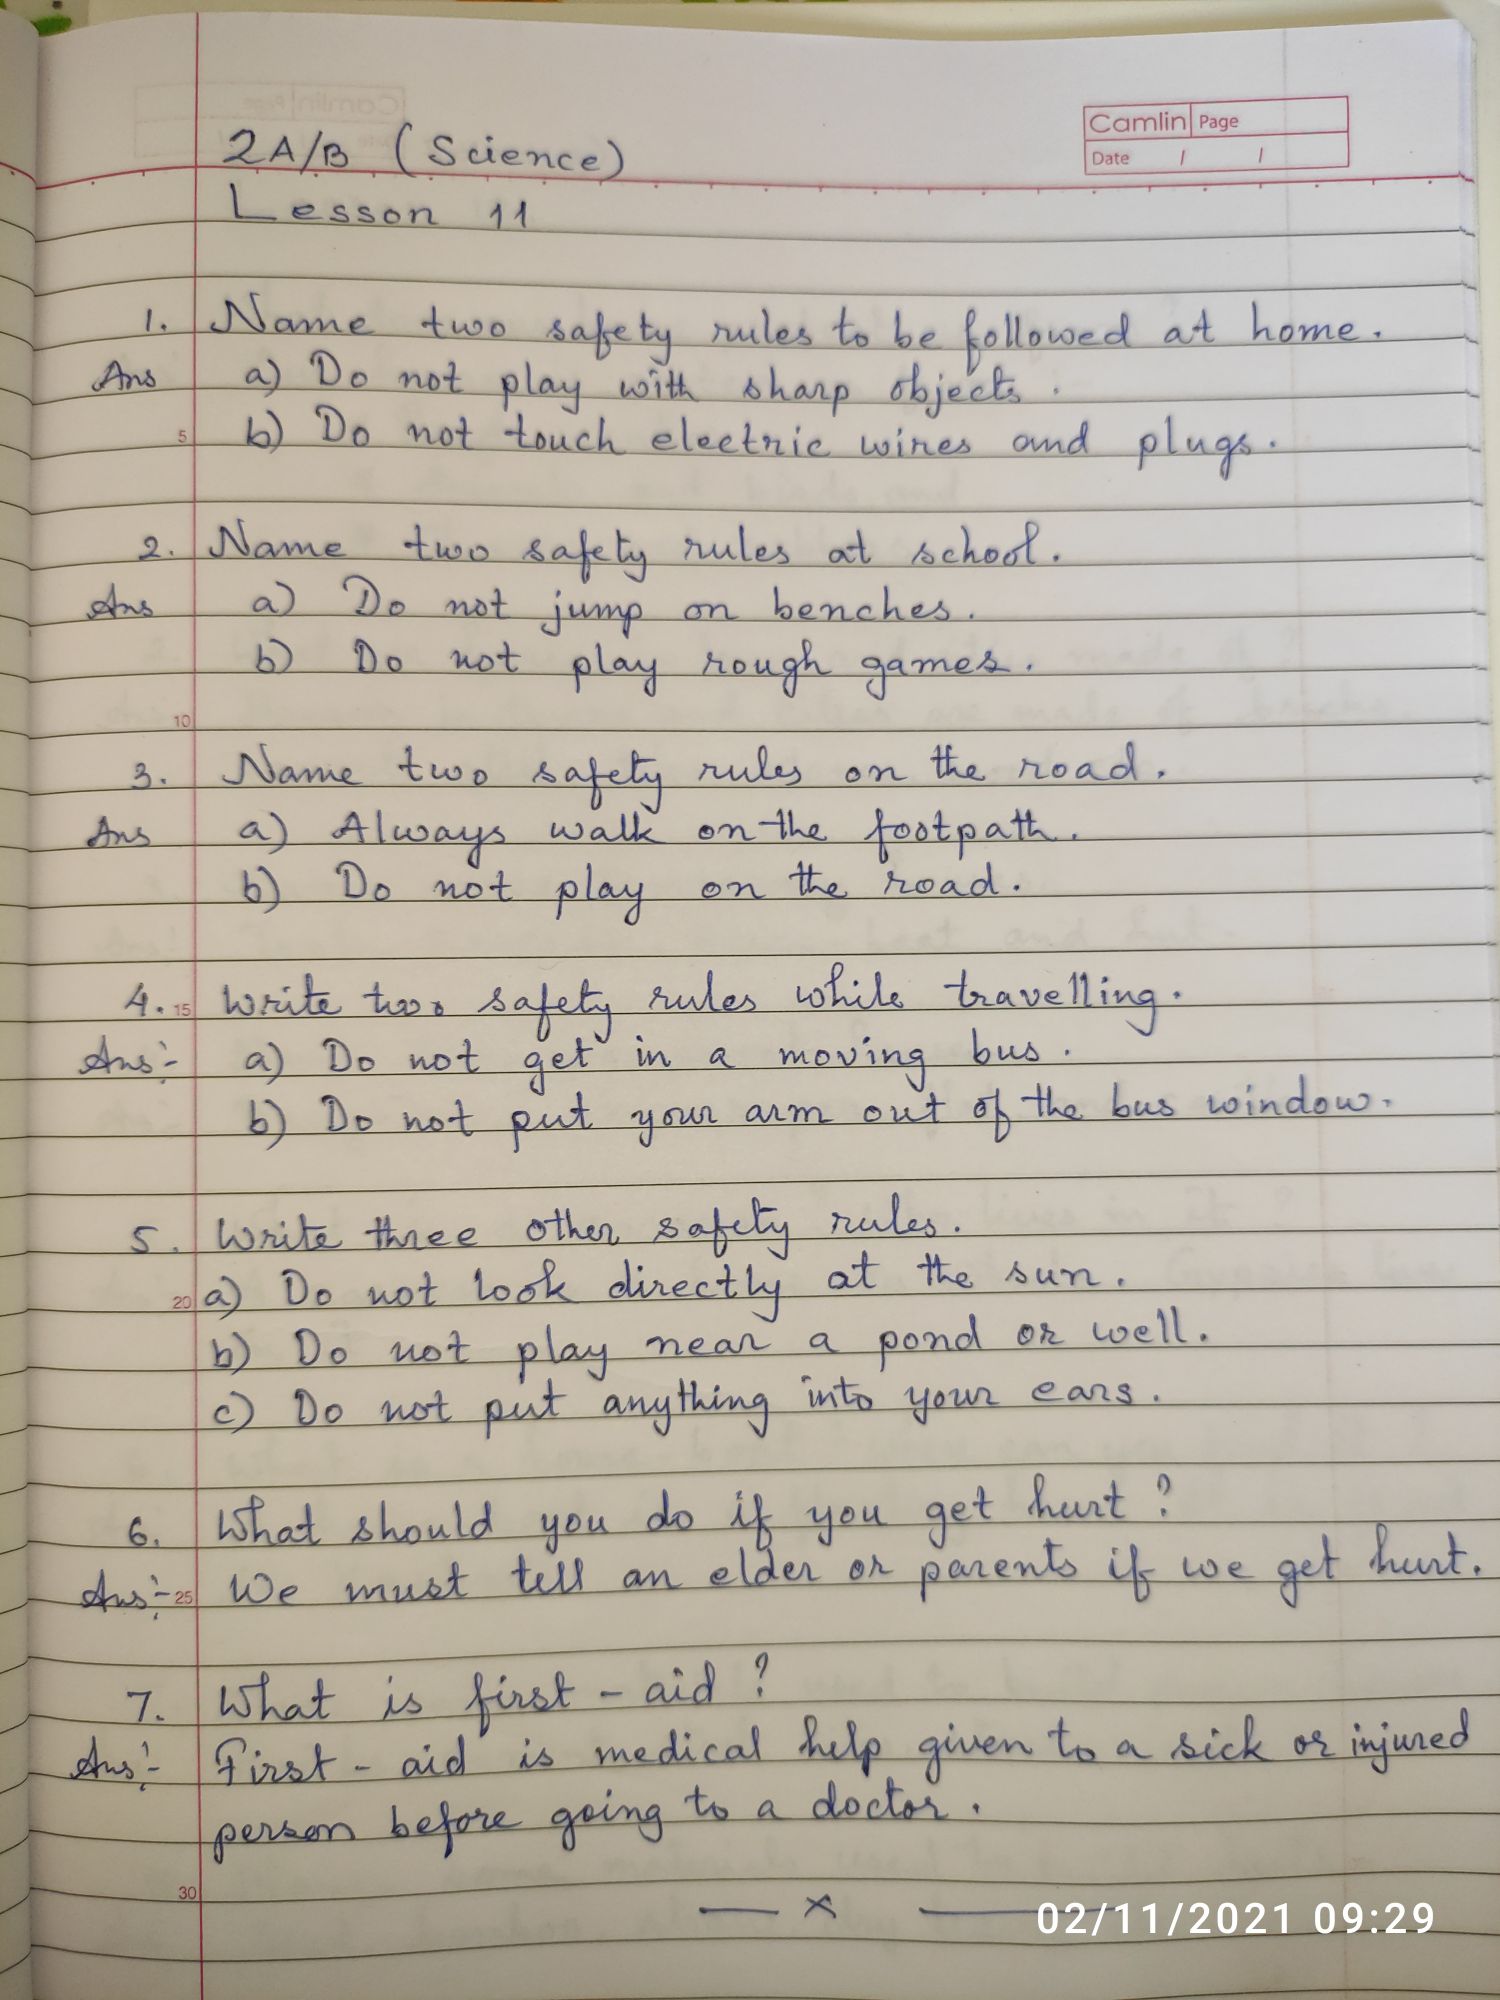 Camlin Page
Date / /
2A/B (Science)
Lesson 11
1. Name two safety rules to be followed at home.
Ans a) Do not play with sharp objects.
5 b) Do not touch electric wires and plugs.
2. Name two safety rules at school.
Ans a) Do not jump on benches.
b) Do not play rough games.
10
3. Name two safety rules on the road.
Ans a) Always walk on the footpath.
b) Do not play on the road.
4. 15 Write two safety rules while travelling.
Ans:- a) Do not get in a moving bus.
b) Do not put your arm out of the bus window.
5. Write three other safety rules.
20 a) Do not look directly at the sun.
b) Do not play near a pond or well.
c) Do not put anything into your ears.
6. What should you do if you get hurt?
Ans:- 25 We must tell an elder or parents if we get hurt.
7. What is first-aid?
Ans:- First-aid is medical help given to a sick or injured
person before going to a doctor.
30
— x —
02/11/2021 09:29